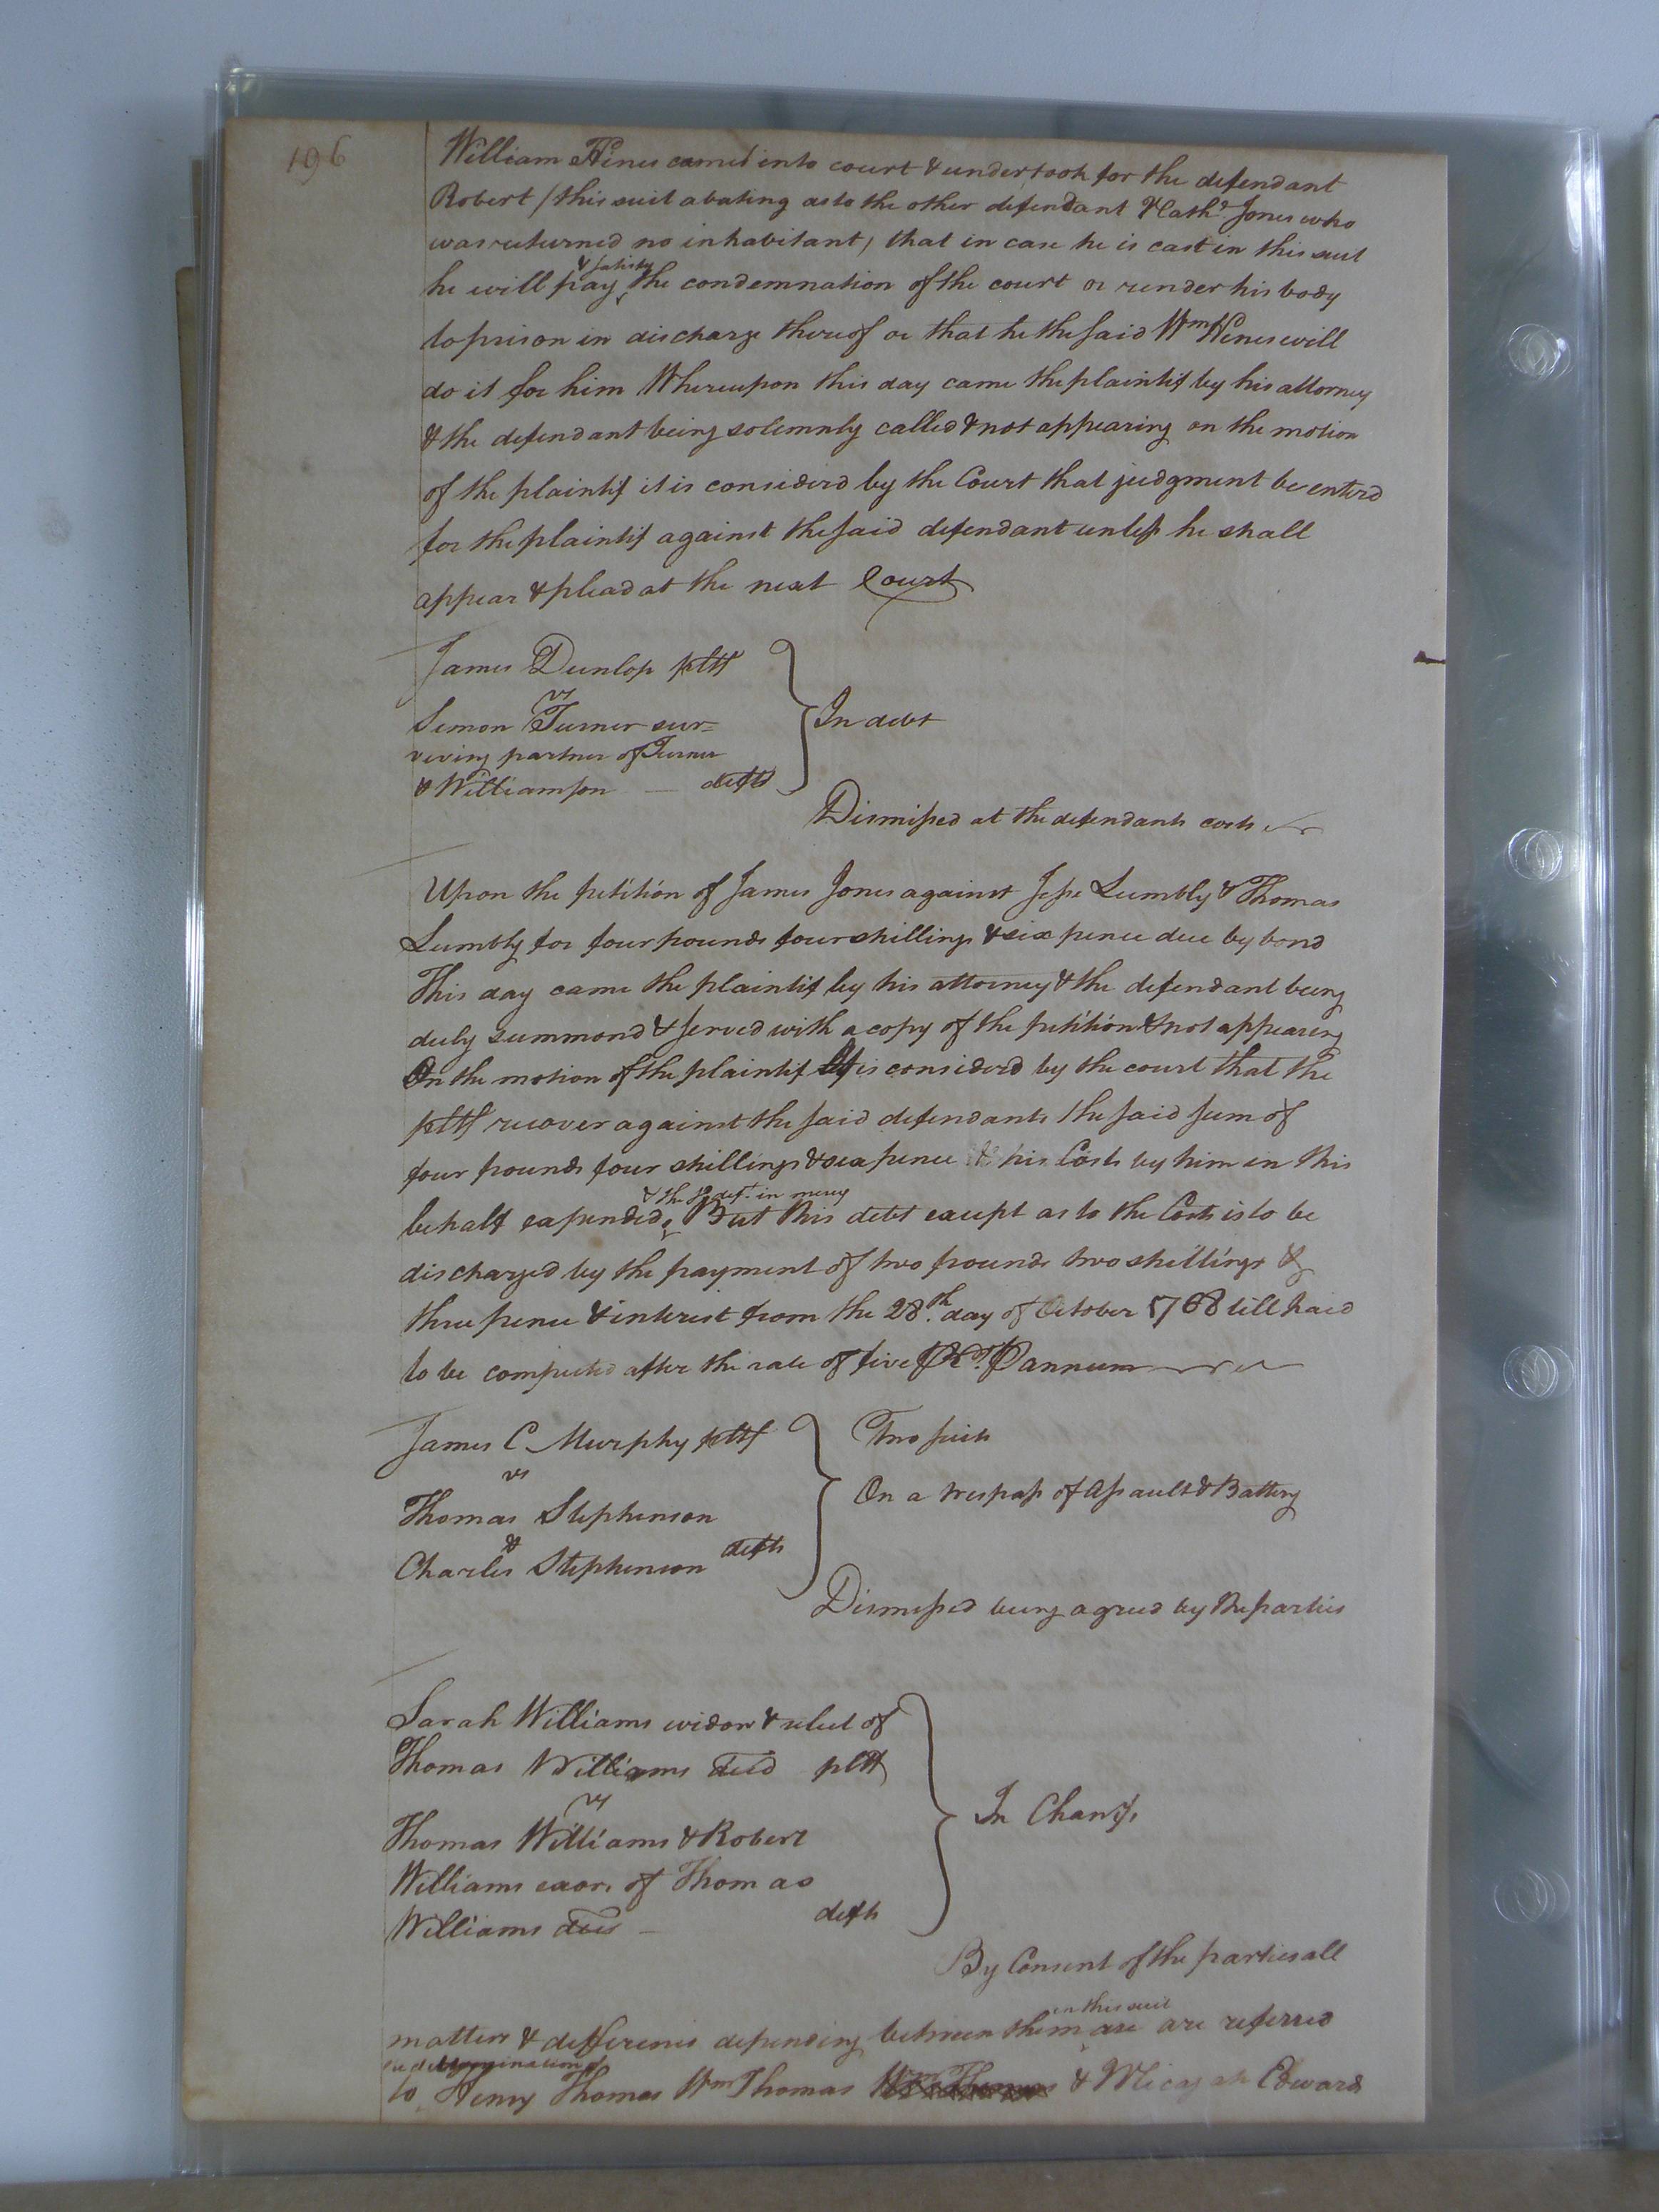 196
William Hines came into court & undertook for the defendant
Robert (this suit abating as to the other defendant Nath.l Jones who
was returned no inhabitant) that in case he is cast in this suit
& satisfy
he will pay the condemnation of the court or render his body
to prison in discharge thereof or that he the said Wm Hines will
do it for him Whereupon this day came the plaintif by his attorney
& the defendant being solemnly called & not appearing on the motion
of the plaintif it is considerd by the Court that judgment be enterd
for the plaintif against the said defendant unless he shall
appear & plead at the next Court
James Dunlop pltf
vs
Simon Turner sur=
viving partner of Turner
& Williamson — deft
In debt
Dismissed at the defendants costs
Upon the petition of James Jones against Jesse Lumbly & Thomas
Lumbly for four pounds four shillings & six pence due by bond
This day came the plaintif by his attorney & the defendant being
duly summond & served with a copy of the petition & not appearing
On the motion of the plaintif It is considerd by the court that the
pltf recover against the said defendants the said sum of
four pounds four shillings & six pence & his Costs by him in this
& the sd. deft. in mercy
behalf expended, But this debt except as to the Costs is to be
discharged by the payment of two pounds two shillings &
three pence & interest from the 28th. day of October 1768 till paid
to be computed after the rate of five P Ct. P annum
James C Murphy pltf
vs
Thomas Stephenson
&
Charles Stephenson defts
Two suits
On a trespass of assault & Battery
Dismissed being agreed by the parties
Sarah Williams widow & relict of
Thomas Williams decd pltf
vs
Thomas Williams & Robert
Williams exors of Thomas
Williams decd — defts
In Chancy.
By Consent of the parties all
in this suit
matters & differences depending between them are are referred
the determination of
to Henry Thomas Wm Thomas & Micajah Edwards